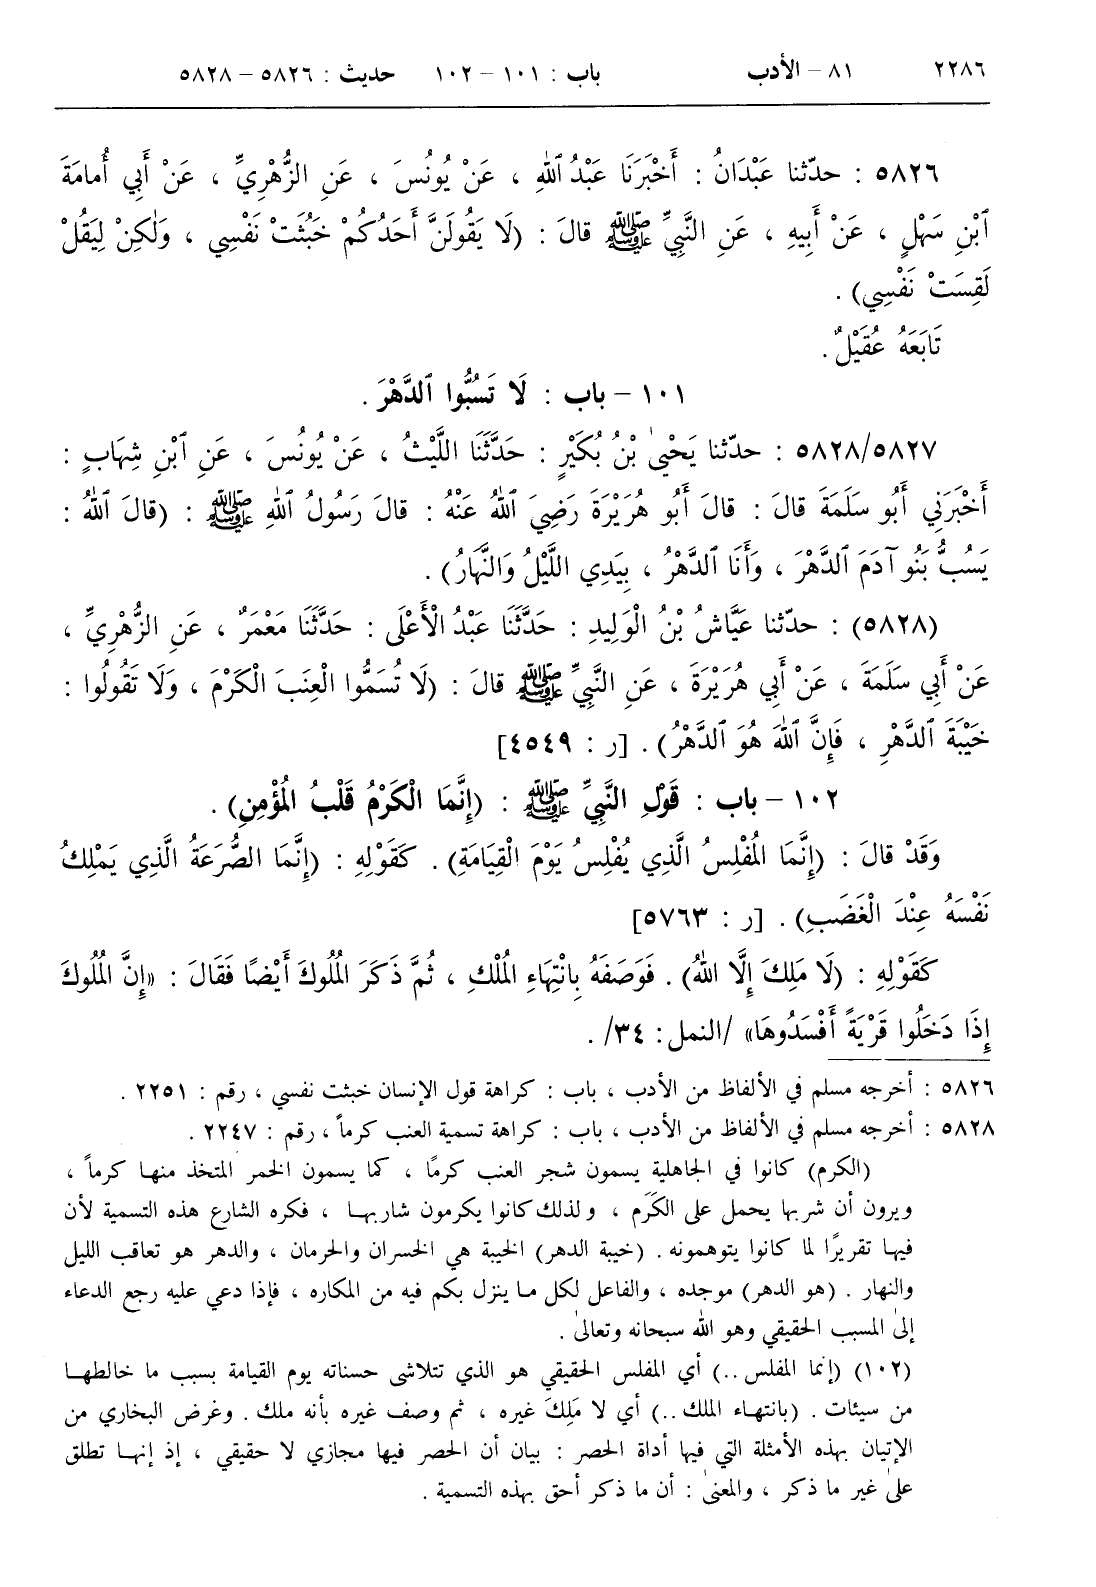 ٢٢٨٦ ٨١ – الأدب باب : ١٠١ – ١٠٢ حديث : ٥٨٢٦ – ٥٨٢٨
٥٨٢٦ : حدّثنا عَبْدَانُ : أَخْبَرَنَا عَبْدُ ٱللهِ ، عَنْ يُونُسَ ، عَنِ الزُّهْرِيِّ ، عَنْ أَبِي أُمامَةَ
ٱبْنِ سَهْلٍ ، عَنْ أَبِيهِ ، عَنِ النَّبِيِّ ﷺ قالَ : (لَا يَقُولَنَّ أَحَدُكُمْ خَبُثَتْ نَفْسِي ، وَلٰكِنْ لِيَقُلْ
لَقِسَتْ نَفْسِي) .
تَابَعَهُ عُقَيْلٌ .
١٠١ – باب : لَا تَسُبُّوا ٱلدَّهْرَ .
٥٨٢٨/٥٨٢٧ : حدّثنا يَحْيىٰ بْنُ بُكَيْرٍ : حَدَّثَنَا اللَّيْثُ ، عَنْ يُونُسَ ، عَنِ ٱبْنِ شِهَابٍ :
أَخْبَرَنِي أَبُو سَلَمَةَ قالَ : قالَ أَبُو هُرَيْرَةَ رَضِيَ ٱللهُ عَنْهُ : قالَ رَسُولُ ٱللهِ ﷺ : (قالَ ٱللهُ :
يَسُبُّ بَنُو آدَمَ ٱلدَّهْرَ ، وَأَنَا ٱلدَّهْرُ ، بِيَدِي اللَّيْلُ وَالنَّهَارُ) .
(٥٨٢٨) : حدّثنا عَيَّاشُ بْنُ الْوَلِيدِ : حَدَّثَنَا عَبْدُ الْأَعْلَى : حَدَّثَنَا مَعْمَرٌ ، عَنِ الزُّهْرِيِّ ،
عَنْ أَبِي سَلَمَةَ ، عَنْ أَبِي هُرَيْرَةَ ، عَنِ النَّبِيِّ ﷺ قالَ : (لَا تُسَمُّوا الْعِنَبَ الْكَرْمَ ، وَلَا تَقُولُوا :
خَيْبَةَ ٱلدَّهْرِ ، فَإِنَّ ٱللهَ هُوَ ٱلدَّهْرُ) . [ر : ٤٥٤٩]
١٠٢ – باب : قَوْلِ النَّبِيِّ ﷺ : (إِنَّمَا الْكَرْمُ قَلْبُ الْمُؤْمِنِ) .
وَقَدْ قالَ : (إِنَّمَا الْمُفْلِسُ الَّذِي يُفْلِسُ يَوْمَ الْقِيَامَةِ) . كَقَوْلِهِ : (إِنَّمَا الصُّرَعَةُ الَّذِي يَمْلِكُ
نَفْسَهُ عِنْدَ الْغَضَبِ) . [ر : ٥٧٦٣]
كَقَوْلِهِ : (لَا مَلِكَ إِلَّا ٱللهُ) . فَوَصَفَهُ بِانْتِهَاءِ الْمُلْكِ ، ثُمَّ ذَكَرَ الْمُلُوكَ أَيْضًا فَقَالَ : «إِنَّ الْمُلُوكَ
إِذَا دَخَلُوا قَرْيَةً أَفْسَدُوهَا» /النمل: ٣٤/ .
٥٨٢٦ : أخرجه مسلم في الألفاظ من الأدب ، باب : كراهة قول الإنسان خبثت نفسي ، رقم : ٢٢٥١ .
٥٨٢٨ : أخرجه مسلم في الألفاظ من الأدب ، باب : كراهة تسمية العنب كرماً ، رقم : ٢٢٤٧ .
(الكرم) كانوا في الجاهلية يسمون شجر العنب كرمًا ، كما يسمون الخمر المتخذ منها كرماً ،
ويرون أن شربها يحمل على الكَرَم ، ولذلك كانوا يكرمون شاربها ، فكره الشارع هذه التسمية لأن
فيها تقريرًا لما كانوا يتوهمونه . (خيبة الدهر) الخيبة هي الخسران والحرمان ، والدهر هو تعاقب الليل
والنهار . (هو الدهر) موجده ، والفاعل لكل ما ينزل بكم فيه من المكاره ، فإذا دعي عليه رجع الدعاء
إلىٰ المسبب الحقيقي وهو الله سبحانه وتعالىٰ .
(١٠٢) (إنما المفلس ..) أي المفلس الحقيقي هو الذي تتلاشى حسناته يوم القيامة بسبب ما خالطها
من سيئات . (بانتهاء الملك ..) أي لا مَلِكَ غيره ، ثم وصف غيره بأنه ملك . وغرض البخاري من
الإتيان بهذه الأمثلة التي فيها أداة الحصر : بيان أن الحصر فيها مجازي لا حقيقي ، إذ إنها تطلق
علىٰ غير ما ذكر ، والمعنىٰ : أن ما ذكر أحق بهذه التسمية .